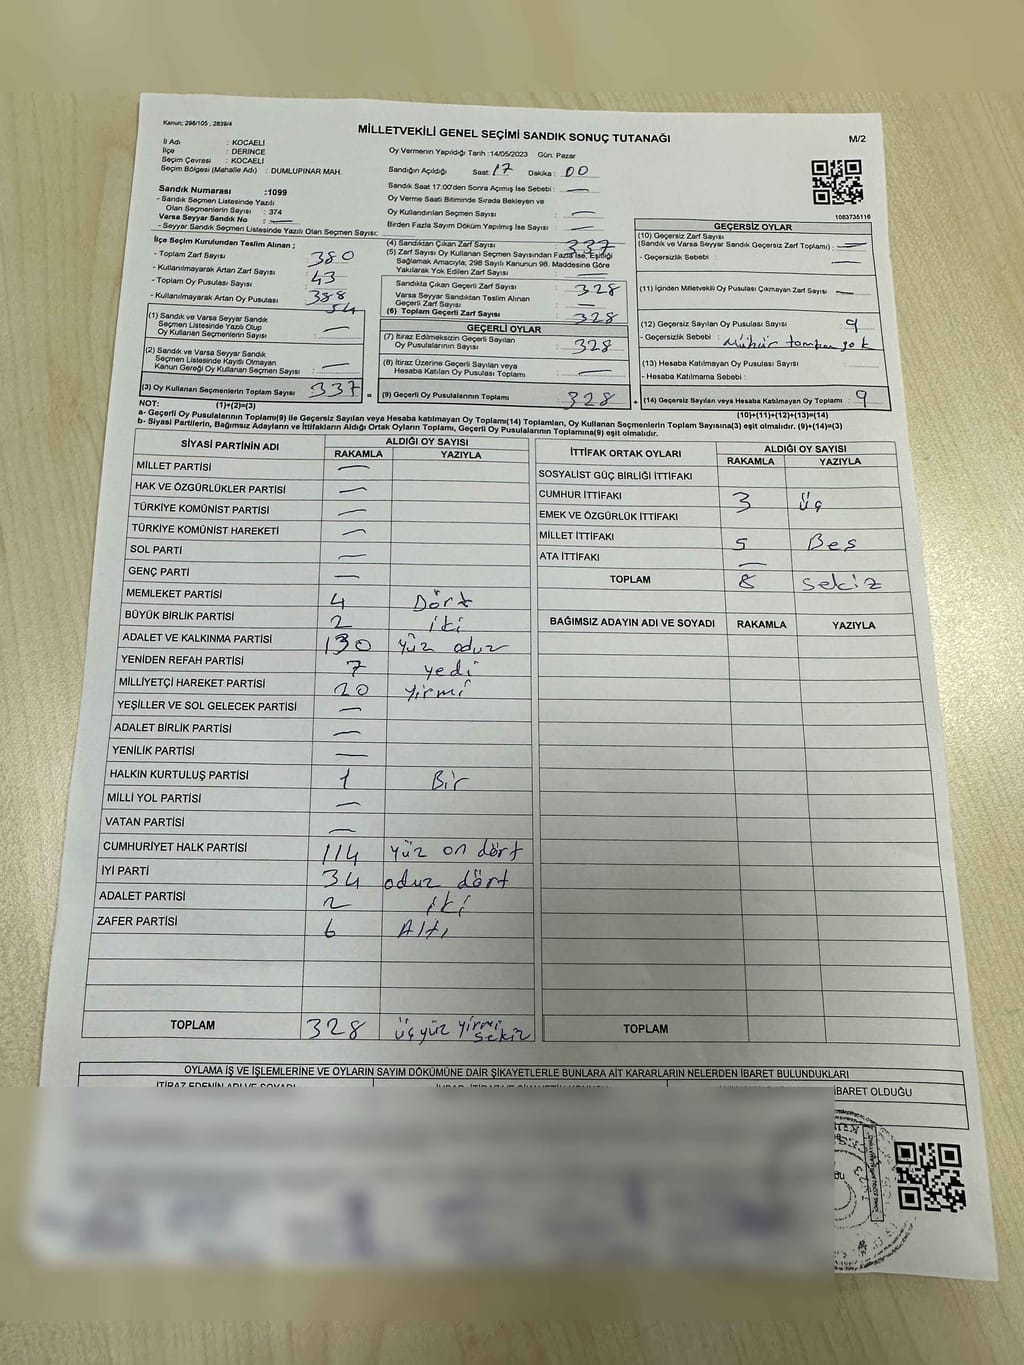 Kanun; 298/105 , 2839/4
MİLLETVEKİLİ GENEL SEÇİMİ SANDIK SONUÇ TUTANAĞI
M/2
İl Adı : KOCAELİ
İlçe : DERİNCE
Seçim Çevresi : KOCAELİ
Seçim Bölgesi (Mahalle Adı) : DUMLUPINAR MAH.
Sandık Numarası :1099
- Sandık Seçmen Listesinde Yazılı
Olan Seçmenlerin Sayısı : 374
Varsa Seyyar Sandık No : —
- Seyyar Sandık Seçmen Listesinde Yazılı Olan Seçmen Sayısı:
Oy Vermenin Yapıldığı Tarih :14/05/2023 Gün: Pazar
Sandığın Açıldığı Saat: 17 Dakika : 00
Sandık Saat 17:00'den Sonra Açımış İse Sebebi : —
Oy Verme Saati Bitiminde Sırada Bekleyen ve
Oy Kullandırılan Seçmen Sayısı : —
Birden Fazla Sayım Döküm Yapılmış İse Sayısı : —
1083735116
İlçe Seçim Kurulundan Teslim Alınan ;
- Toplam Zarf Sayısı : 380
- Kullanılmayarak Artan Zarf Sayısı : 43
- Toplam Oy Pusulası Sayısı : 388
- Kullanılmayarak Artan Oy Pusulası : 54
(1) Sandık ve Varsa Seyyar Sandık
Seçmen Listesinde Yazılı Olup
Oy Kullanan Seçmenlerin Sayısı : —
(2) Sandık ve Varsa Seyyar Sandık
Seçmen Listesinde Kayıtlı Olmayan
Kanun Gereği Oy Kullanan Seçmen Sayısı : —
(3) Oy Kullanan Seçmenlerin Toplam Sayısı : 337
(4) Sandıktan Çıkan Zarf Sayısı : 337
(5) Zarf Sayısı Oy Kullanan Seçmen Sayısından Fazla İse, Eşitliği
Sağlamak Amacıyla; 298 Sayılı Kanunun 98. Maddesine Göre
Yakılarak Yok Edilen Zarf Sayısı : —
Sandıkta Çıkan Geçerli Zarf Sayısı : 328
Varsa Seyyar Sandıktan Teslim Alınan
Geçerli Zarf Sayısı : —
(6) Toplam Geçerli Zarf Sayısı : 328
GEÇERLİ OYLAR
(7) İtiraz Edilmeksizin Geçerli Sayılan
Oy Pusulalarının Sayısı : 328
(8) İtiraz Üzerine Geçerli Sayılan veya
Hesaba Katılan Oy Pusulası Toplamı : —
= (9) Geçerli Oy Pusulalarının Toplamı 328
GEÇERSİZ OYLAR
(10) Geçersiz Zarf Sayısı
(Sandık ve Varsa Seyyar Sandık Geçersiz Zarf Toplamı) : —
- Geçersizlik Sebebi : —
(11) İçinden Milletvekili Oy Pusulası Çıkmayan Zarf Sayısı : —
(12) Geçersiz Sayılan Oy Pusulası Sayısı : 9
- Geçersizlik Sebebi : Mühür
(13) Hesaba Katılmayan Oy Pusulası Sayısı :
- Hesaba Katılmama Sebebi :
+ (14) Geçersiz Sayılan veya Hesaba Katılmayan Oy Toplamı : 9
NOT: (1)+(2)=(3)
(10)+(11)+(12)+(13)=(14)
a- Geçerli Oy Pusulalarının Toplamı(9) ile Geçersiz Sayılan veya Hesaba katılmayan Oy Toplamı(14) Toplamları, Oy Kullanan Seçmenlerin Toplam Sayısına(3) eşit olmalıdır. (9)+(14)=(3)
b- Siyasi Partilerin, Bağımsız Adayların ve İttifakların Aldığı Ortak Oyların Toplamı, Geçerli Oy Pusulalarının Toplamına(9) eşit olmalıdır.
SİYASİ PARTİNİN ADI ALDIĞI OY SAYISI
RAKAMLA YAZIYLA
MİLLET PARTİSİ —
HAK VE ÖZGÜRLÜKLER PARTİSİ —
TÜRKİYE KOMÜNİST PARTİSİ —
TÜRKİYE KOMÜNİST HAREKETİ —
SOL PARTİ —
GENÇ PARTİ —
MEMLEKET PARTİSİ 4 Dört
BÜYÜK BİRLİK PARTİSİ 2 iki
ADALET VE KALKINMA PARTİSİ 130 yüz oduz
YENİDEN REFAH PARTİSİ 7 yedi
MİLLİYETÇİ HAREKET PARTİSİ 20 yirmi
YEŞİLLER VE SOL GELECEK PARTİSİ —
ADALET BİRLİK PARTİSİ —
YENİLİK PARTİSİ —
HALKIN KURTULUŞ PARTİSİ 1 Bir
MİLLİ YOL PARTİSİ —
VATAN PARTİSİ —
CUMHURİYET HALK PARTİSİ 114 yüz on dört
İYİ PARTİ 34 oduz dört
ADALET PARTİSİ 2 iki
ZAFER PARTİSİ 6 Altı
TOPLAM 328 üçyüz yirmi sekiz
İTTİFAK ORTAK OYLARI ALDIĞI OY SAYISI
RAKAMLA YAZIYLA
SOSYALİST GÜÇ BİRLİĞİ İTTİFAKI
CUMHUR İTTİFAKI 3 üç
EMEK VE ÖZGÜRLÜK İTTİFAKI
MİLLET İTTİFAKI 5 Beş
ATA İTTİFAKI —
TOPLAM 8 sekiz
BAĞIMSIZ ADAYIN ADI VE SOYADI RAKAMLA YAZIYLA
TOPLAM
OYLAMA İŞ VE İŞLEMLERİNE VE OYLARIN SAYIM DÖKÜMÜNE DAİR ŞİKAYETLERLE BUNLARA AİT KARARLARIN NELERDEN İBARET BULUNDUKLARI
İTİRAZ EDENİN ADI VE SOYADI
İBARET OLDUĞU